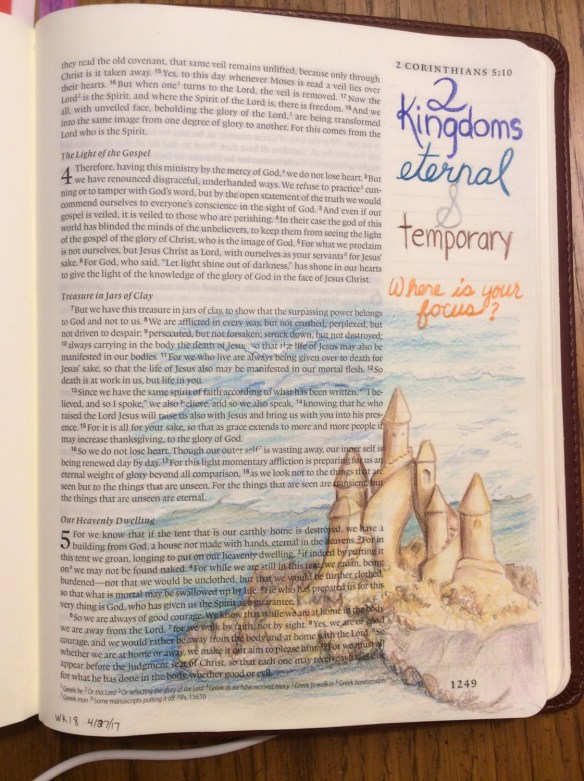 they read the old covenant, that same veil remains unlifted, because only through
Christ is it taken away. 15 Yes, to this day whenever Moses is read a veil lies over
their hearts. 16 But when one1 turns to the Lord, the veil is removed. 17 Now the
Lord2 is the Spirit, and where the Spirit of the Lord is, there is freedom. 18 And we
all, with unveiled face, beholding the glory of the Lord,3 are being transformed
into the same image from one degree of glory to another. For this comes from the
Lord who is the Spirit.
The Light of the Gospel
4 Therefore, having this ministry by the mercy of God,4 we do not lose heart. 2 But
we have renounced disgraceful, underhanded ways. We refuse to practice5 cun-
ning or to tamper with God's word, but by the open statement of the truth we would
commend ourselves to everyone's conscience in the sight of God. 3 And even if our
gospel is veiled, it is veiled to those who are perishing. 4 In their case the god of this
world has blinded the minds of the unbelievers, to keep them from seeing the light
of the gospel of the glory of Christ, who is the image of God. 5 For what we proclaim
is not ourselves, but Jesus Christ as Lord, with ourselves as your servants6 for Jesus'
sake. 6 For God, who said, "Let light shine out of darkness," has shone in our hearts
to give the light of the knowledge of the glory of God in the face of Jesus Christ.
Treasure in Jars of Clay
7 But we have this treasure in jars of clay, to show that the surpassing power belongs
to God and not to us. 8 We are afflicted in every way, but not crushed; perplexed, but
not driven to despair; 9 persecuted, but not forsaken; struck down, but not destroyed;
10 always carrying in the body the death of Jesus, so that the life of Jesus may also be
manifested in our bodies. 11 For we who live are always being given over to death for
Jesus' sake, so that the life of Jesus also may be manifested in our mortal flesh. 12 So
death is at work in us, but life in you.
13 Since we have the same spirit of faith according to what has been written, "I be-
lieved, and so I spoke," we also believe, and so we also speak, 14 knowing that he who
raised the Lord Jesus will raise us also with Jesus and bring us with you into his pres-
ence. 15 For it is all for your sake, so that as grace extends to more and more people it
may increase thanksgiving, to the glory of God.
16 So we do not lose heart. Though our outer self is wasting away, our inner self is
being renewed day by day. 17 For this light momentary affliction is preparing for us an
eternal weight of glory beyond all comparison, 18 as we look not to the things that are
seen but to the things that are unseen. For the things that are seen are transient, but
the things that are unseen are eternal.
Our Heavenly Dwelling
5 For we know that if the tent that is our earthly home is destroyed, we have a
building from God, a house not made with hands, eternal in the heavens. 2 For in
this tent we groan, longing to put on our heavenly dwelling, 3 if indeed by putting it
on7 we may not be found naked. 4 For while we are still in this tent, we groan, being
burdened—not that we would be unclothed, but that we would be further clothed,
so that what is mortal may be swallowed up by life. 5 He who has prepared us for this
very thing is God, who has given us the Spirit as a guarantee.
6 So we are always of good courage. We know that while we are at home in the body
we are away from the Lord, 7 for we walk by faith, not by sight. 8 Yes, we are of good
courage, and we would rather be away from the body and at home with the Lord. 9 So
whether we are at home or away, we make it our aim to please him. 10 For we must all
appear before the judgment seat of Christ, so that each one may receive what is due
for what he has done in the body, whether good or evil.
1 Greek he 2 Or this Lord 3 Or reflecting the glory of the Lord 4 Greek as we have received mercy 5 Greek to walk in 6 Greek bondservants
7 Some manuscripts putting it off
WK18 4/27/17
2 CORINTHIANS 5:10
2
Kingdoms
eternal
&
temporary
Where is your
focus?
1249